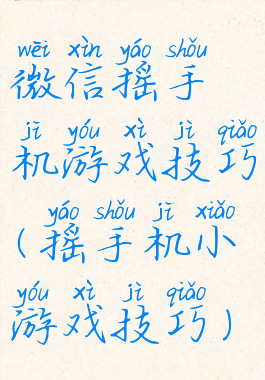 wēi xìn yáo shǒu
微信摇手
jī yóu xì jì qiǎo
机游戏技巧
yáo shǒu jī xiǎo
(摇手机小
yóu xì jì qiǎo
游戏技巧)